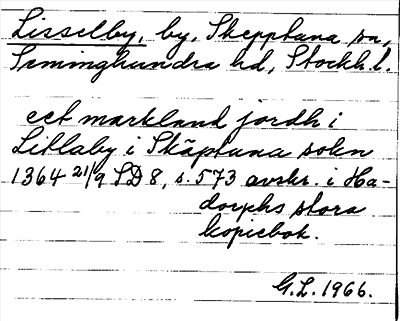 Lisselby, by, Skepptuna sn,
Seminghundra hd, Stockh.l.
ect markland jordh i
Litlaby i Skäptuna sokn
1364 21/9 SD 8, s. 573 avskr. i Ha-
dorphs stora
kopiebok.
G.L. 1966.